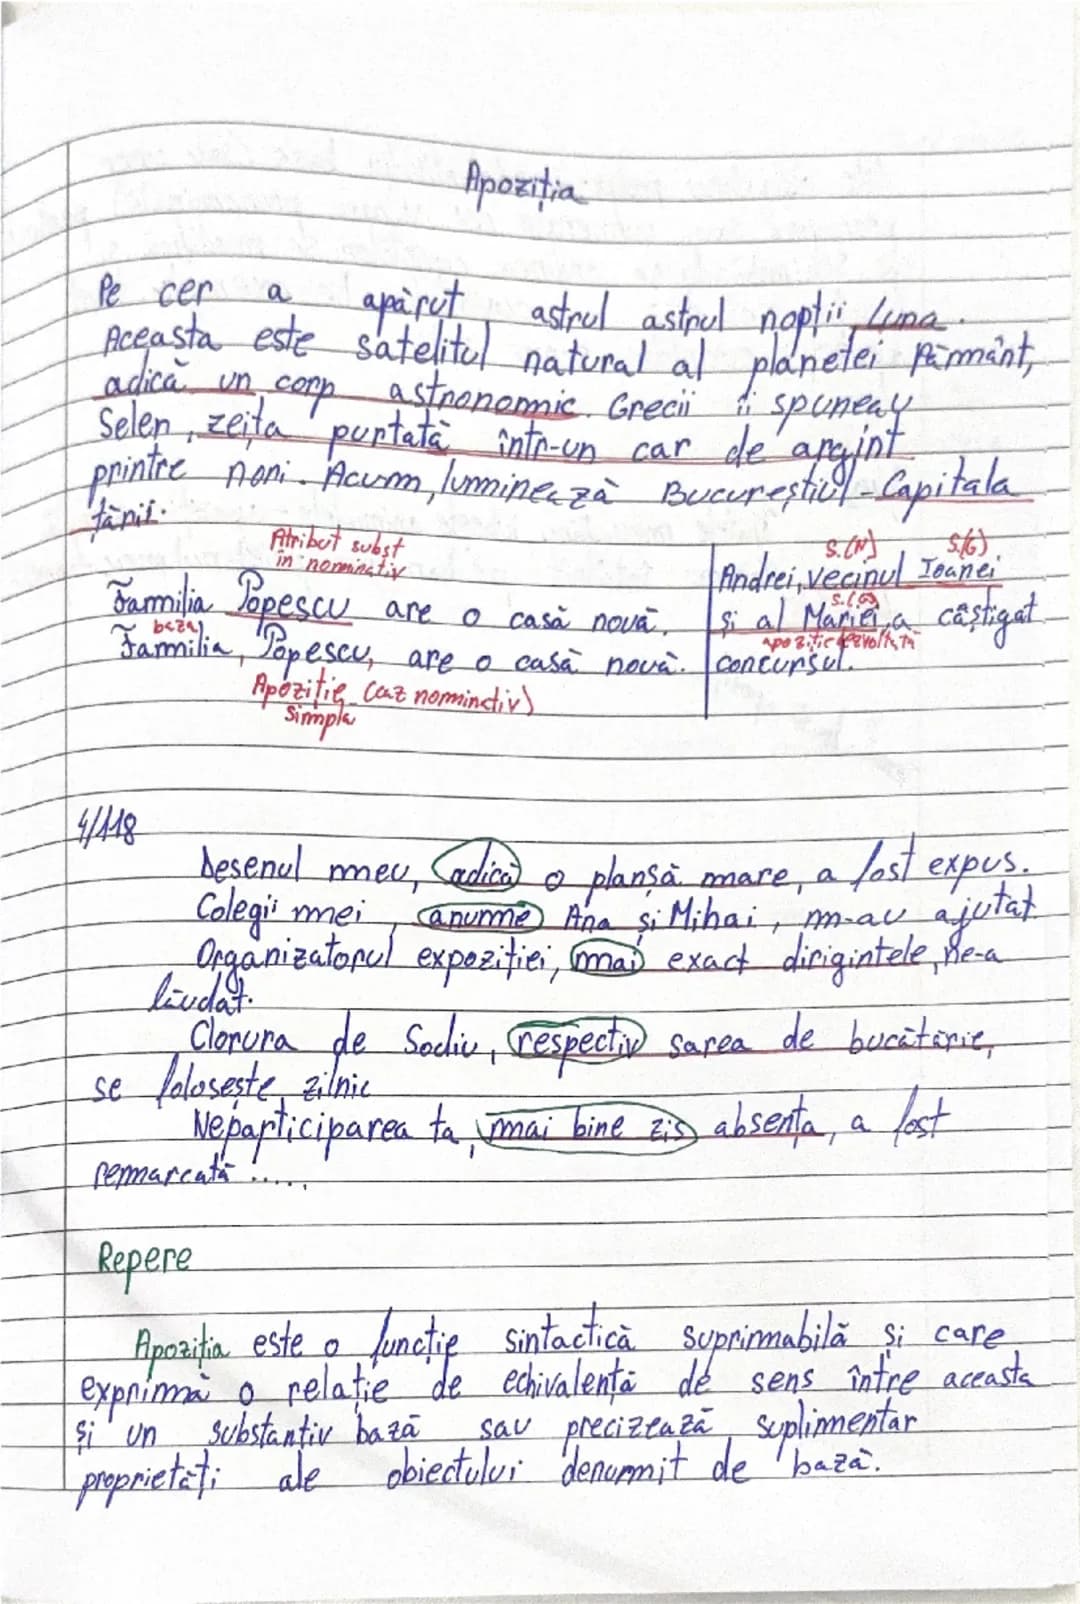 Apoziția
Pe cer a apărut astrul astrul nopții, Luna.
Aceasta este satelitul natural al planetei Pământ,
adică un corp astronomic. Grecii îi spuneau
Selen, zeița purtată într-un car de argint
printre nori. Acum, luminează Bucureștiul - Capitala
țării.
Atribut subst
în nominativ
Familia Popescu are o casă nouă.
baza
Familia, Popescu, are o casă nouă.
Apoziție (caz nominativ)
simpla
S.(N) S.(G)
Andrei, vecinul Ioanei
S.(G)
și al Mariei, a câștigat
apoziție dezvoltată
concursul.
4/118
Desenul meu, adică o planșă mare, a fost expus.
Colegii mei, anume Ana și Mihai, m-au ajutat
Organizatorul expoziției, mai exact dirigintele, ne-a
lăudat.
Clorura de Sodiu, respectiv sarea de bucătărie,
se folosește zilnic
Neparticiparea ta, mai bine zis absența, a fost
remarcată .....
Repere
Apoziția este o funcție sintactică suprimabilă și care
exprimă o relație de echivalență de sens între aceasta
și un substantiv bază sau precizează suplimentar
proprietăți ale obiectului denumit de bază.